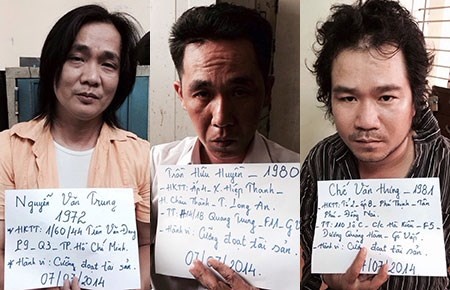 Nguyễn Văn Trung
1972
* HKTT: 1/60/44 Trần Văn Đang
P9 - Q3 - TP. Hồ Chí Minh.
* Hành vi: Cưỡng đoạt tài sản.
07/07/2014
Trần Hữu Huyện - 1980
HKTT: Ấp 4 - X. Hiệp Thạnh -
H. Châu Thành - T. Long An.
TT: Quang Trung - F11 - GV
Hành vi: Cưỡng đoạt tài sản.
07/07/2014
Chế Văn Hưng - 1981
HKTT: Tổ 2, ấp 8 - Phú Thạnh - Tân
Phú - Đồng Nai.
TT: C/c Hà Kiều - F5 -
Đường Quảng Hàm - Gò Vấp
Hành vi: Cưỡng đoạt tài sản.
07/07/2014